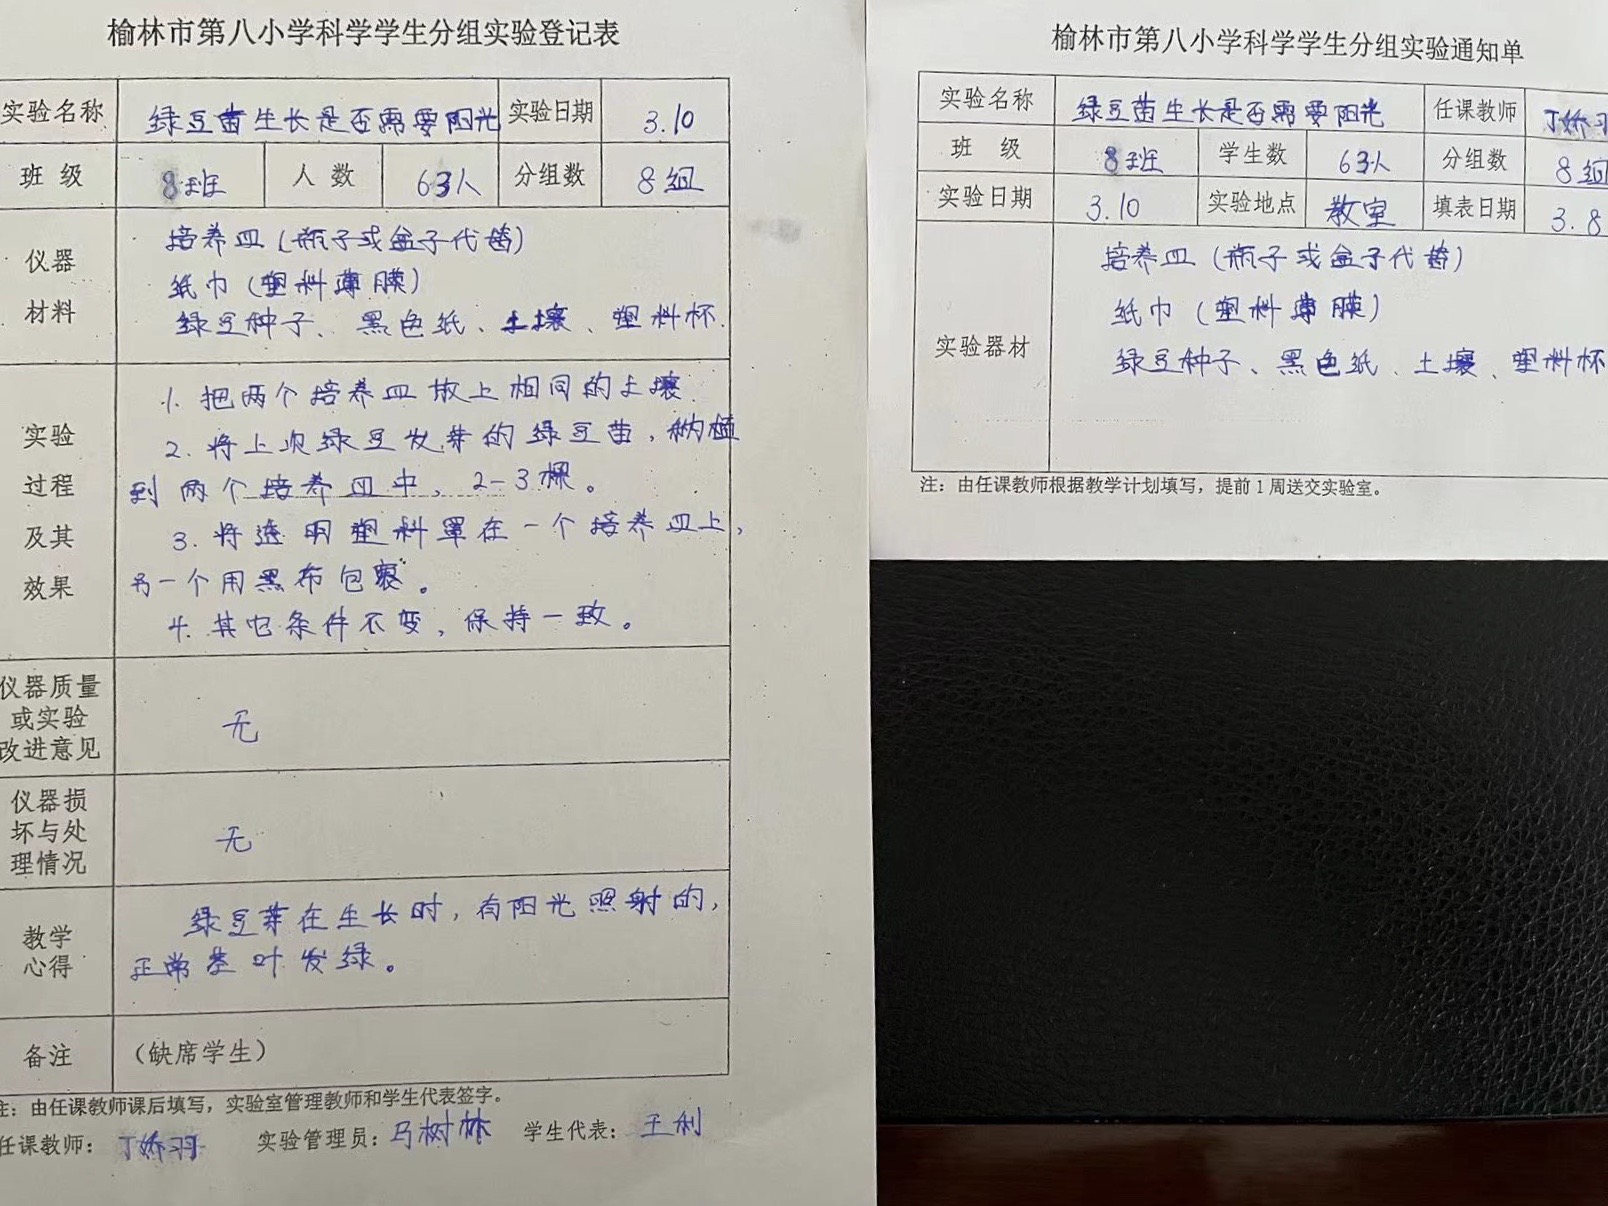 榆林市第八小学科学学生分组实验登记表
实验名称 绿豆苗生长是否需要阳光 实验日期 3.10
班 级 8班 人 数 63人 分组数 8组
仪器
材料
培养皿(瓶子或盒子代替)
纸巾(塑料薄膜)
绿豆种子、黑色纸、土壤、塑料杯.
实验
过程
及其
效果
1. 把两个培养皿放上相同的土壤.
2. 将上次绿豆发芽的绿豆苗,移植
到两个培养皿中,2-3棵。
3. 将透明塑料罩在一个培养皿上,
另一个用黑布包裹。
4. 其它条件不变,保持一致。
仪器质量
或实验
改进意见
无
仪器损
坏与处
理情况
无
教学
心得
绿豆芽在生长时,有阳光照射的,
正常茎叶发绿。
备注 (缺席学生)
注:由任课教师课后填写,实验室管理教师和学生代表签字。
任课教师: 丁娇羽 实验管理员: 马树林 学生代表: 王利
榆林市第八小学科学学生分组实验通知单
实验名称 绿豆苗生长是否需要阳光 任课教师 丁娇羽
班 级 8班 学生数 63人 分组数 8组
实验日期 3.10 实验地点 教室 填表日期 3.8
实验器材
培养皿(瓶子或盒子代替)
纸巾(塑料薄膜)
绿豆种子、黑色纸、土壤、塑料杯
注:由任课教师根据教学计划填写,提前1周送交实验室。